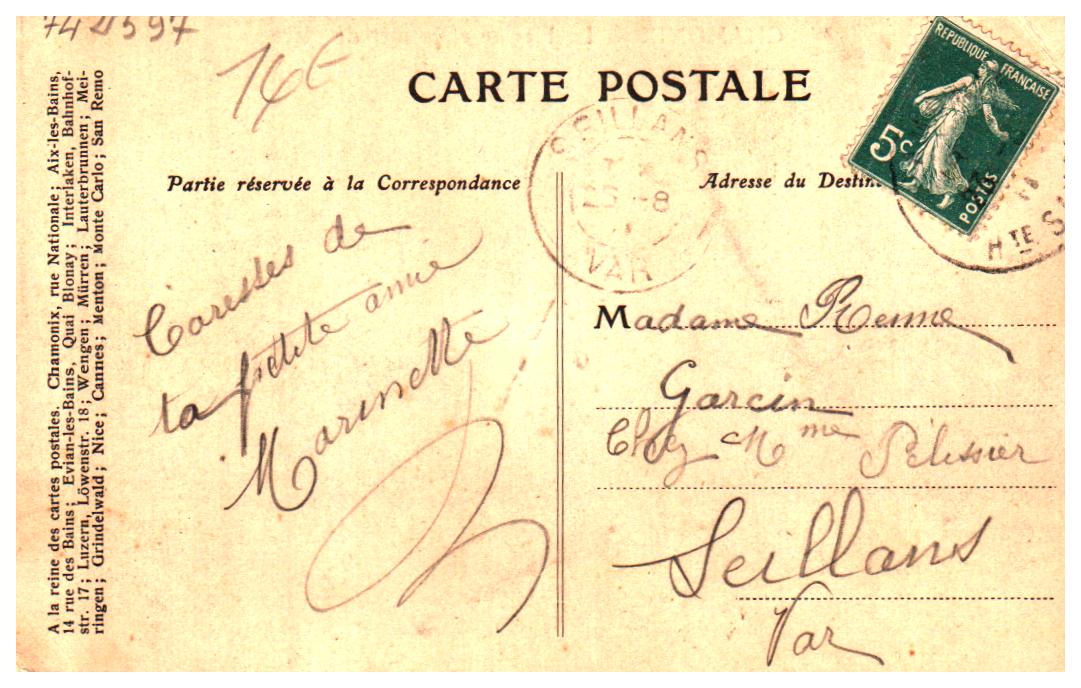 742597
14€
CARTE POSTALE
REPUBLIQUE FRANÇAISE
5c
POSTES
SEILLANS
25 -8
VAR
HTE
Partie réservée à la Correspondance
Adresse du Destin
Caresses de
ta petite amie
Marinette
Madame Renne
Garcin
Chez Mme Pelissier
Seillans
Var
A la reine des cartes postales. Chamonix, rue Nationale; Aix-les-Bains,
14 rue des Bains; Evian-les-Bains, Quai Blonay; Interlaken, Bahnhof-
str. 17; Luzern, Löwenstr. 18; Wengen; Mürren; Lauterbrunnen; Mei-
ringen; Grindelwald; Nice; Cannes; Menton; Monte Carlo; San Remo